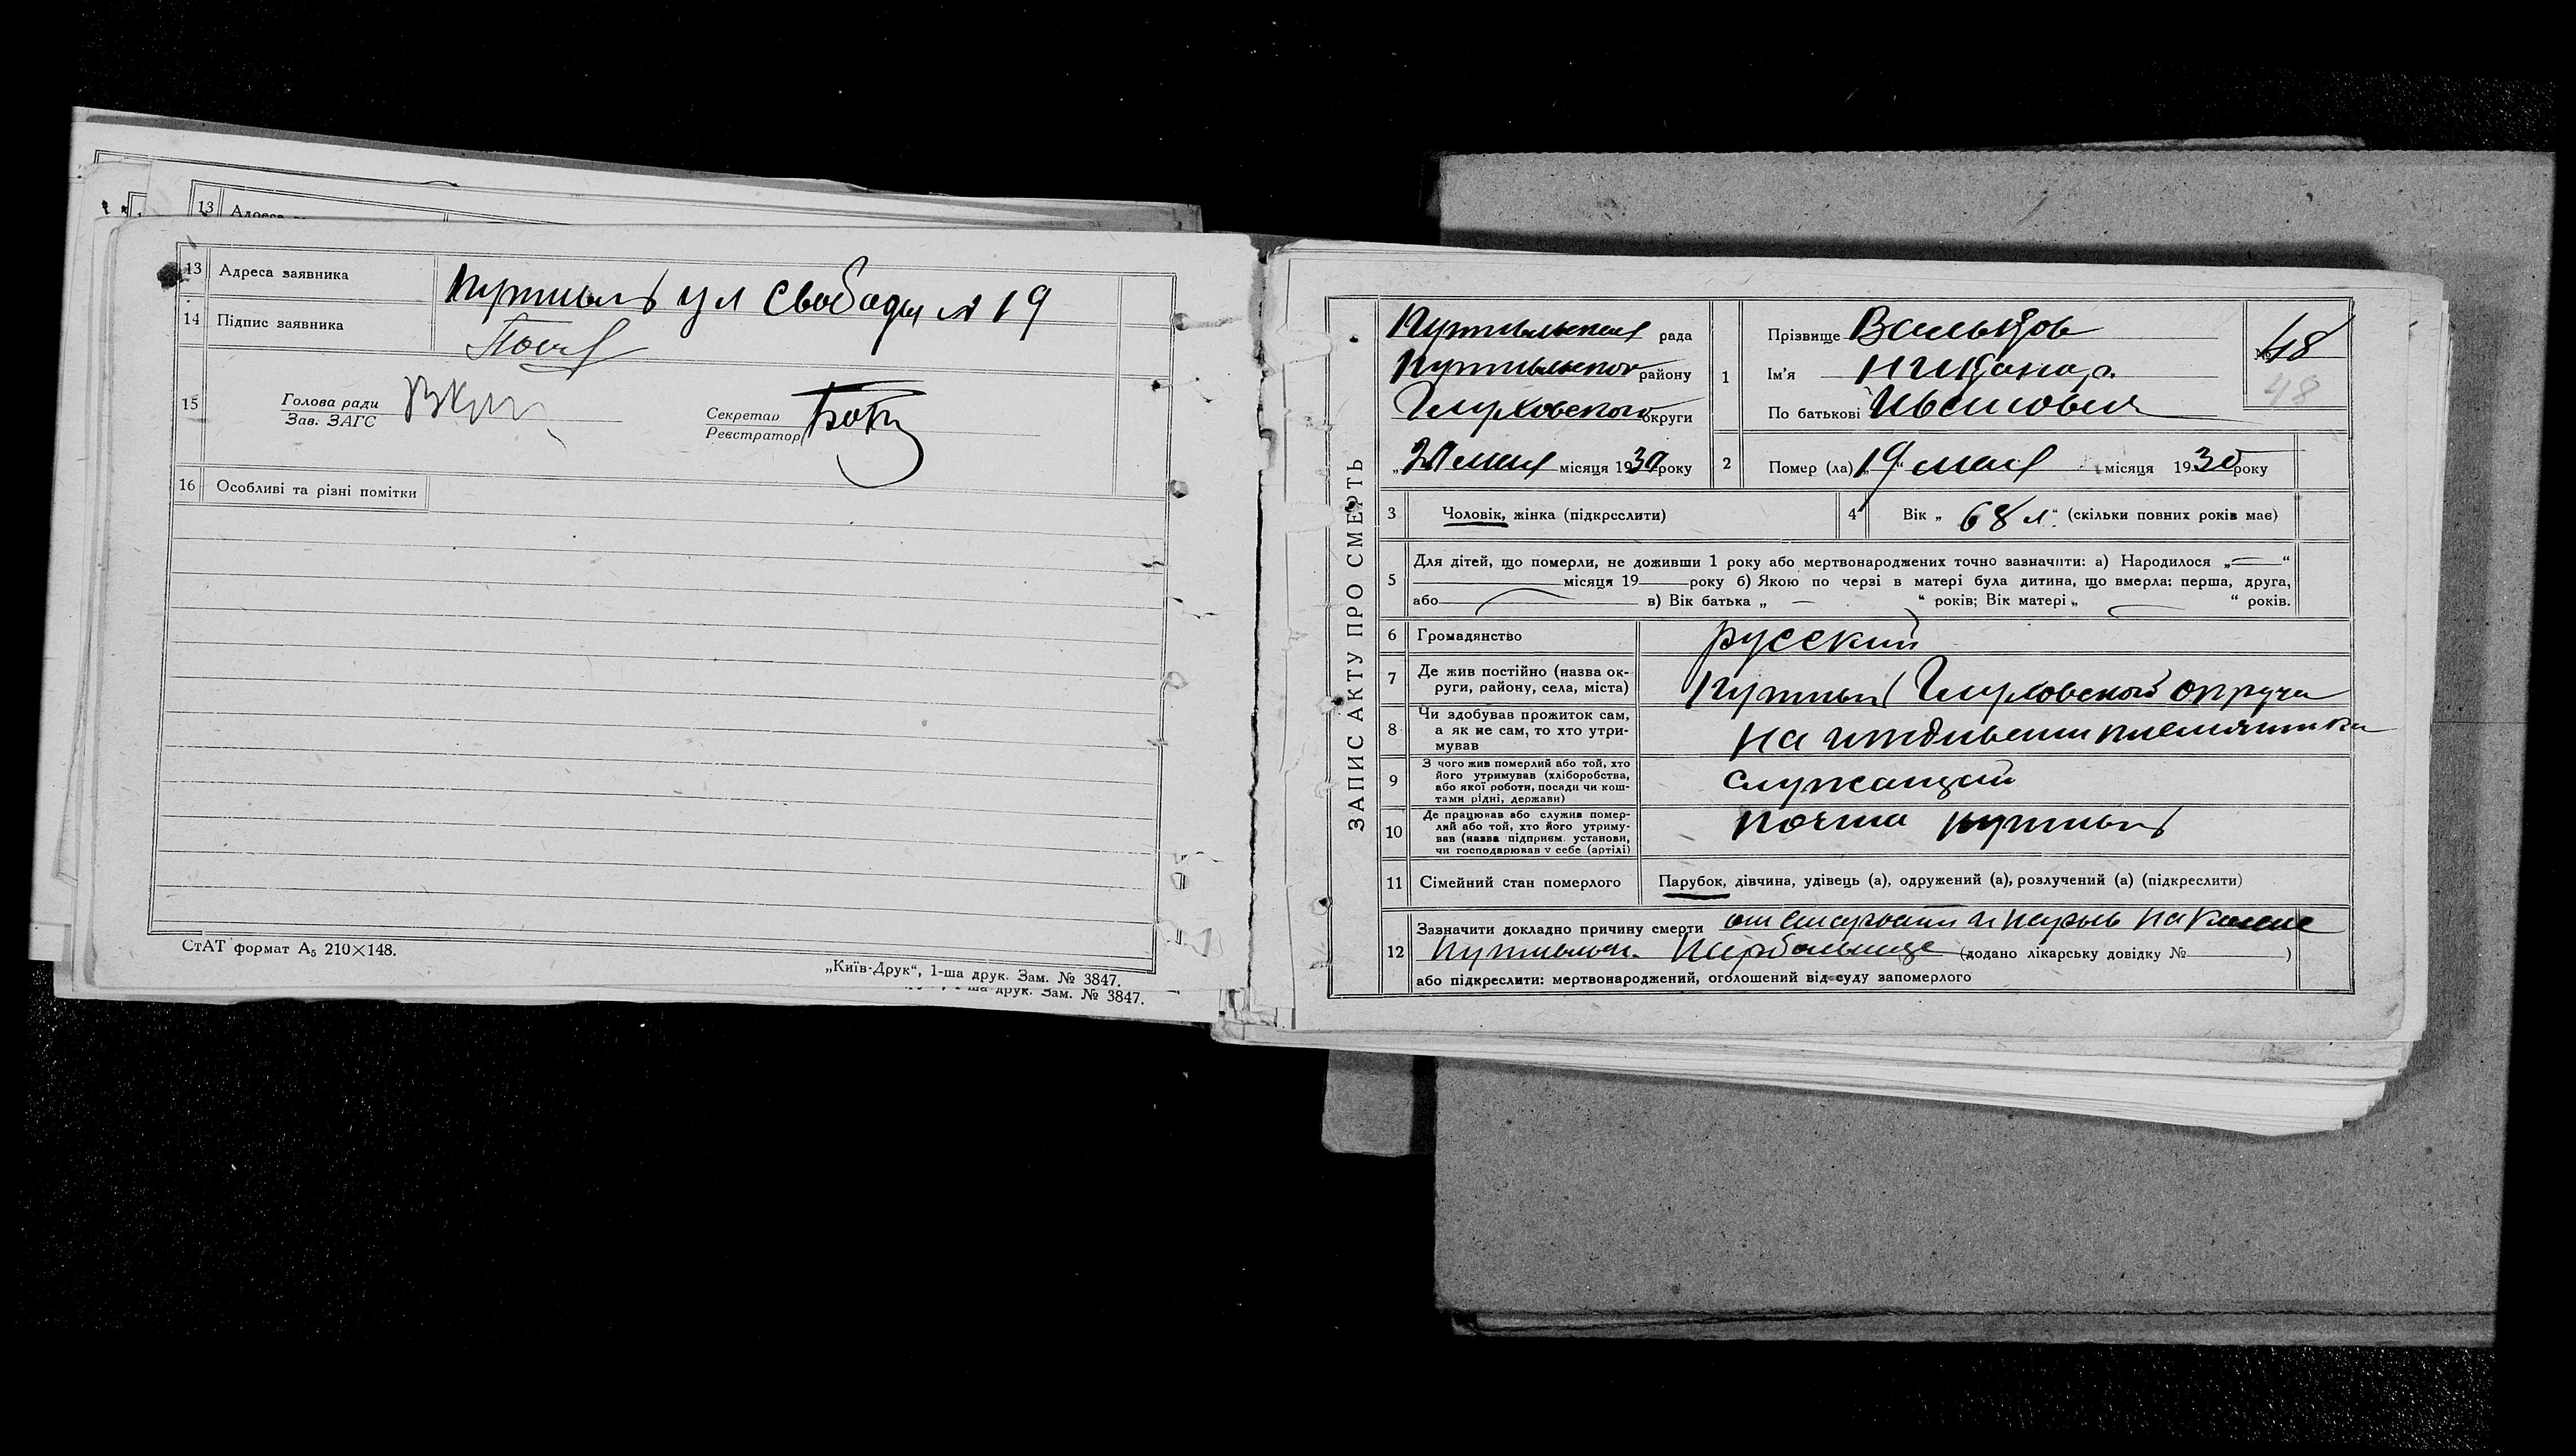 13 Адреса
13 Адреса заявника Путивль ул Свободы № 19
14 Підпис заявника
15 Голова ради
Зав. ЗАГС
Секретар
Реєстратор
16 Особливі та різні помітки
СтАТ формат А5 210×148.
„Київ-Друк“, 1-ша друк. Зам. № 3847.
1-ша друк. Зам. № 3847.
ЗАПИС АКТУ ПРО СМЕРТЬ
Путивльская рада
Путивльског району
Глуховского округи
„20 мая місяця 1930 року
1 Прізвище Вальцов
Ім'я Никанор
По батькові Иванович
№ 48
48
2 Помер (ла) „19“ мая місяця 1930 року
3 Чоловік, жінка (підкреслити)
4 Вік „ 68 л. “ (скільки повних років має)
5 Для дітей, що померли, не доживши 1 року або мертвонароджених точно зазначити: а) Народилося „ — “
місяця 19 року б) Якою по черзі в матері була дитина, що вмерла: перша, друга,
або в) Вік батька „ — “ років; Вік матері „ — “ років.
6 Громадянство русский
7 Де жив постійно (назва ок-
руги, району, села, міста) Путивль Глуховской округи
8 Чи здобував прожиток сам,
а як не сам, то хто утри-
мував на иждивении племянника
9 З чого жив померлий або той, хто
його утримував (хліборобства,
або якої роботи, посади чи кош-
тами рідні, держави) служащий
10 Де працював або служив помер-
лий або той, хто його утриму-
вав (назва підприєм. установи,
чи господарював у себе (артілі) почта Путивль
11 Сімейний стан померлого Парубок, дівчина, удівець (а), одружений (а), розлучений (а) (підкреслити)
12 Зазначити докладно причину смерти от старости и на
Путивльск. (додано лікарську довідку № )
або підкреслити: мертвонароджений, оголошений від суду запомерлого